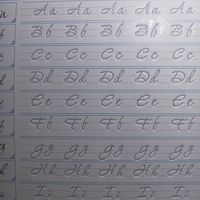 Aa Aa Aa Aa Aa
Bb Bb Bb Bb Bb
Cc Cc Cc Cc Cc
Dd Dd Dd Dd Dd
Ee Ee Ee Ee Ee
Ff Ff Ff Ff Ff
Gg Gg Gg Gg Gg
Hh Hh Hh Hh Hh
Ii Ii Ii Ii Ii